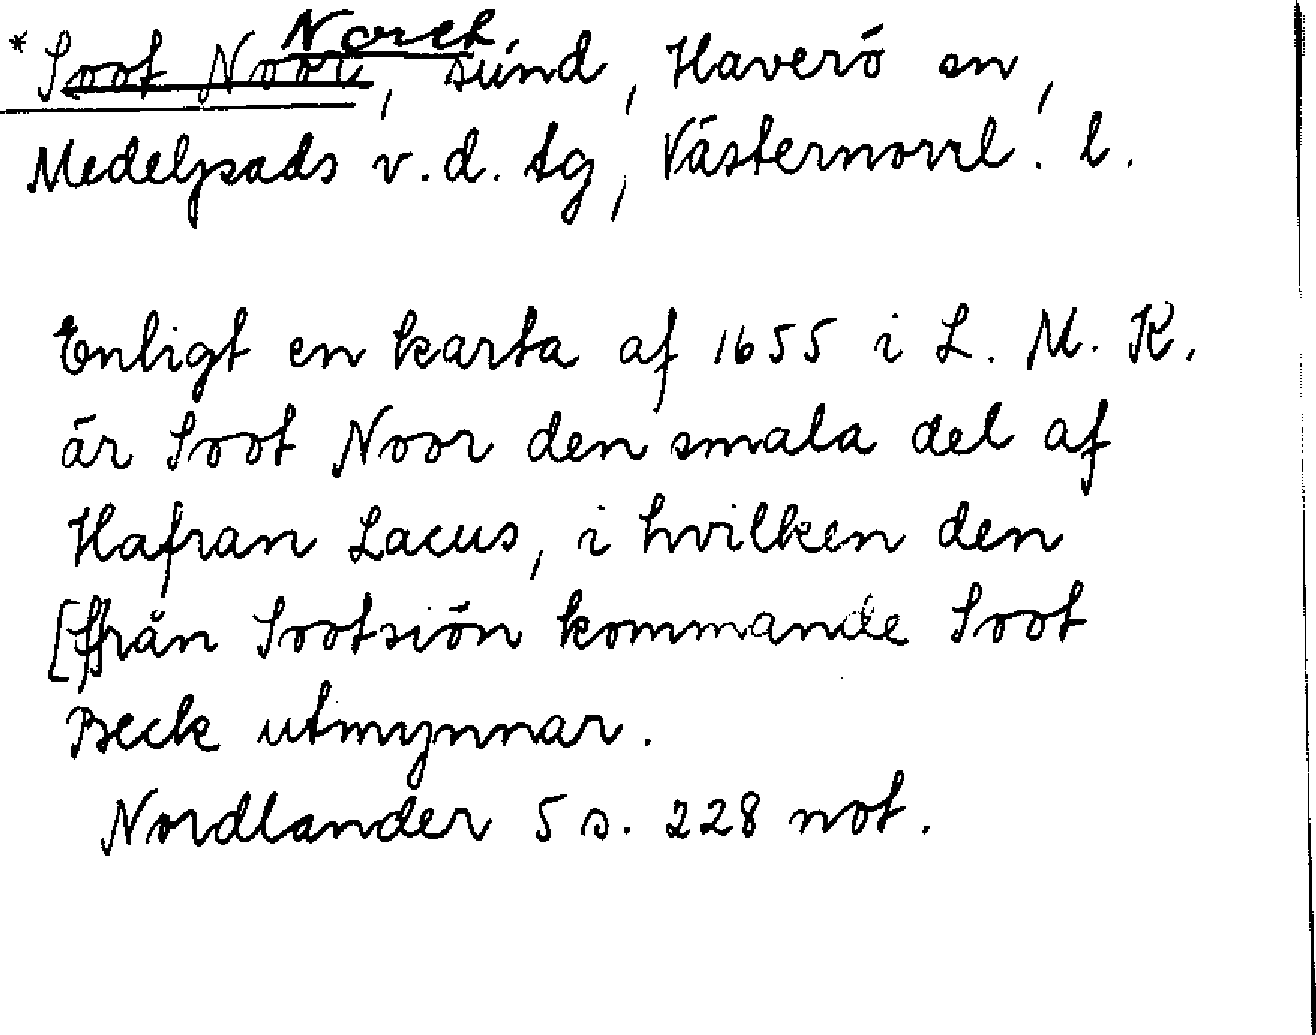 Norek
*Soot Noor, sund, Haverö sn,
Medelpads v.d. tg, Västernorrl. l.
Enligt en karta af 1655 i L. M. K.
är Soot Noor den smala del af
Hafran Lacus, i hvilken den
[från Sootsiön kommande Soot
Beck utmynnar.
Nordlander 5 s. 228 not.